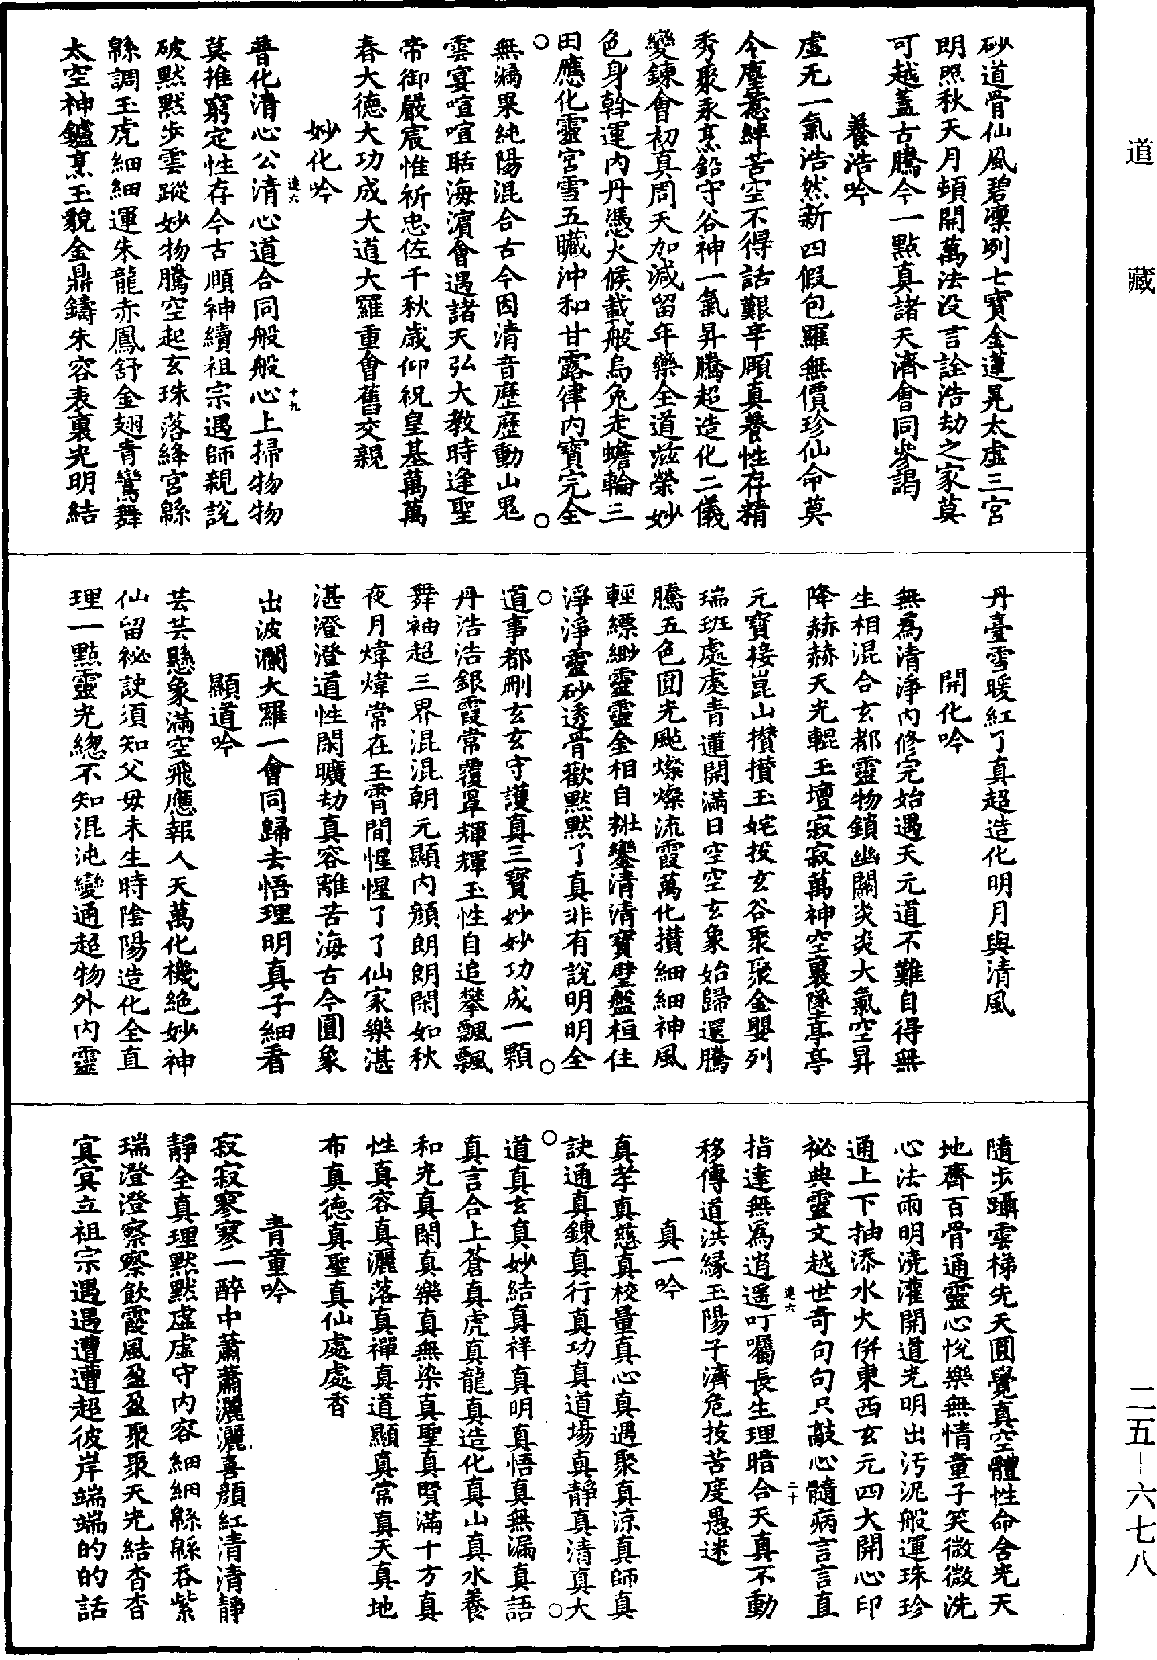 道藏
二五－六七八
砂道骨仙風碧凜冽七寶金蓮晃太虛三宮
朗照秋天月頓開萬法没言詮浩劫之家莫
可越蓋古騰今一點真諸天濟會同參謁
養浩吟
虛无一氣浩然新四假包羅無價珍仙命莫
令塵惹絆苦空不得話艱辛頤真養性存精
秀聚汞烹鉛守谷神一氣昇騰超造化二儀
變鍊會初真周天加減留年藥全道滋榮妙
色身斡運內丹憑火候載般烏兔走蟾輪三
田應化靈宮雪五臟沖和甘露律內寶完全
無漏果純陽混合古今因清音歷歷動山鬼
雲宴喧喧聒海濱會遇諸天弘大教時逢聖
帝御嚴宸惟祈忠佐千秋歲仰祝皇基萬萬
春大德大功成大道大羅重會舊交親
妙化吟
普化清心公清心道合同般般心上掃物物
莫推窮定性存今古順神續祖宗遇師親說
破默默步雲蹤妙物騰空起玄珠落絳宮緜
緜調玉虎細細運朱龍赤鳳舒金翅青鸞舞
太空神鑪烹玉貌金鼎鑄朱容表裏光明結
丹臺雪暖紅了真超造化明月與清風
開化吟
無為清淨內修完始遇天元道不難自得無
生相混合玄都靈物鎖幽關炎炎大氣空昇
降赫赫天光輥玉壇寂寂萬神空裏墜亭亭
元寶接崑山攢攢玉姹投玄谷聚聚金嬰列
瑞班處處青蓮開滿日空空玄象始歸還騰
騰五色圓光颩燦燦流霞萬化攢細細神風
輕縹緲靈靈金相自粧鑾清清寶壁盤桓住
淨淨靈砂透骨歡默默了真非有說明明全
道事都刪玄玄守護真三寶妙妙功成一顆
丹浩浩銀霞常覆罩輝輝玉性自追攀飄飄
舞袖超三界混混朝元顯內顏朗朗閑如秋
夜月煒煒常在玉霄間惺惺了了仙家樂湛
湛澄澄道性閑曠劫真容離苦海古今圓象
出波瀾大羅一會同歸去悟理明真子細看
顯道吟
芸芸懸象滿空飛應報人天萬化機絶妙神
仙留祕訣須知父母未生時陰陽造化全直
理一點靈光總不知混沌變通超物外內靈
隨步躡雲梯先天圓覺真空體性命含光天
地齊百骨通靈心悅樂無情童子笑微微洗
心法雨明澆灌開道光明出污泥般運珠珍
通上下抽添水火併東西玄元四大開心印
祕典靈文越世奇句句只敲心髓病言言直
指達無為逍遙叮囑長生理暗合天真不動
移傳道洪緣玉陽子濟危技苦度愚迷
真一吟
真孝真慈真校量真心真遇聚真涼真師真
訣通真鍊真行真功真道場真靜真清真大
道真玄真妙結真祥真明真悟真無漏真語
真言合上蒼真虎真龍真造化真山真水養
和光真閑真樂真無染真聖真賢滿十方真
性真容真灑落真禪真道顯真常真天真地
布真德真聖真仙處處香
青童吟
寂寂寥寥一醉中蕭蕭灑灑喜顏紅清清靜
靜全真理默默虛虛守內容細細緜緜吞紫
瑞澄澄察察飲霞風盈盈聚聚天光結杳杳
冥冥立祖宗遇遇遭遭超彼岸端端的的話